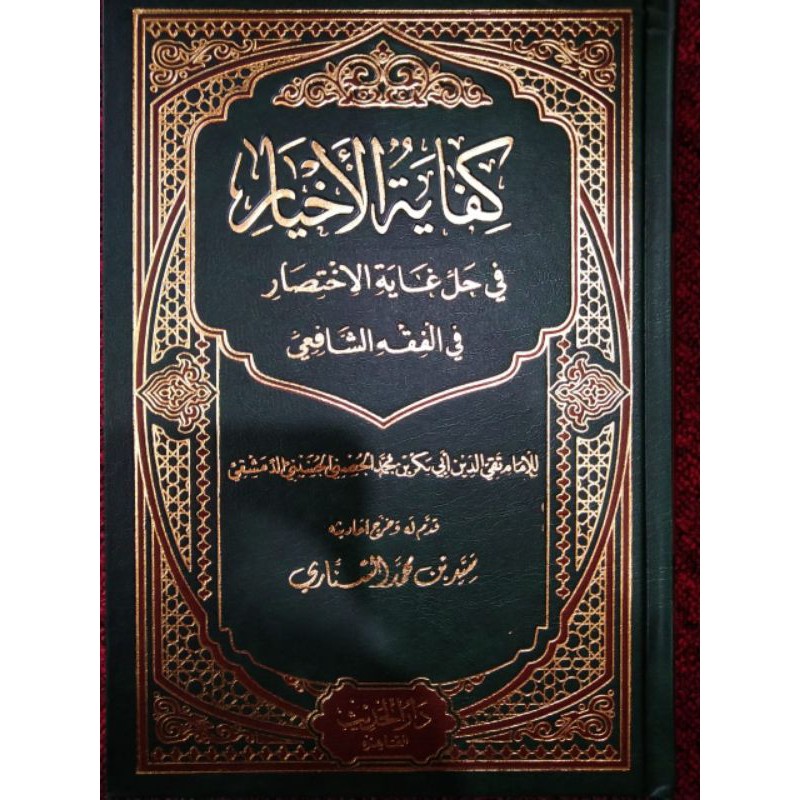 كِفَايَةُ الأَخْيَارِ
فِي حَلِّ غَايَةِ الِاخْتِصَارِ
فِي الفِقْهِ الشَّافِعِيِّ
لِلإمَام تَقِيّ الدِّين أَبِي بَكْر بْن مُحَمَّد الحِصْنِيّ الحُسَيْنِيّ الدِّمَشْقِيّ
قدَّم له وخرج أحاديثه
سَيِّد بْن مُحَمَّد السَّنَّاري
دَارُ الحَدِيث
القاهرة